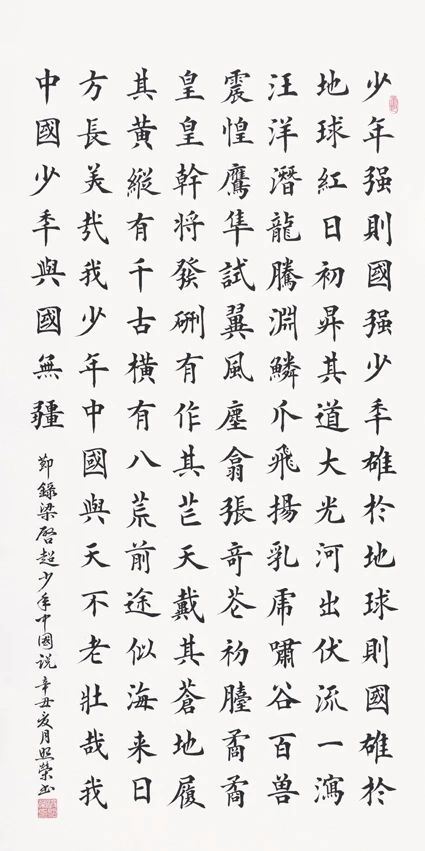 少年强則國强少秊雄於地球則國雄於
地球紅日初昇其道大光河出伏流一瀉
汪洋潛龍騰淵鱗爪飛揚乳虎嘯谷百兽
震惶鷹隼試翼風塵翕張竒花初矞矞
皇皇幹將發硎有作其芒天戴其蒼地履
其黃縱有千古橫有八荒前途似海来日
方長美哉我少年中國與天不老壯哉我
中國少秊與國無疆
節錄梁啓超少年中國说 辛丑夏月照榮书